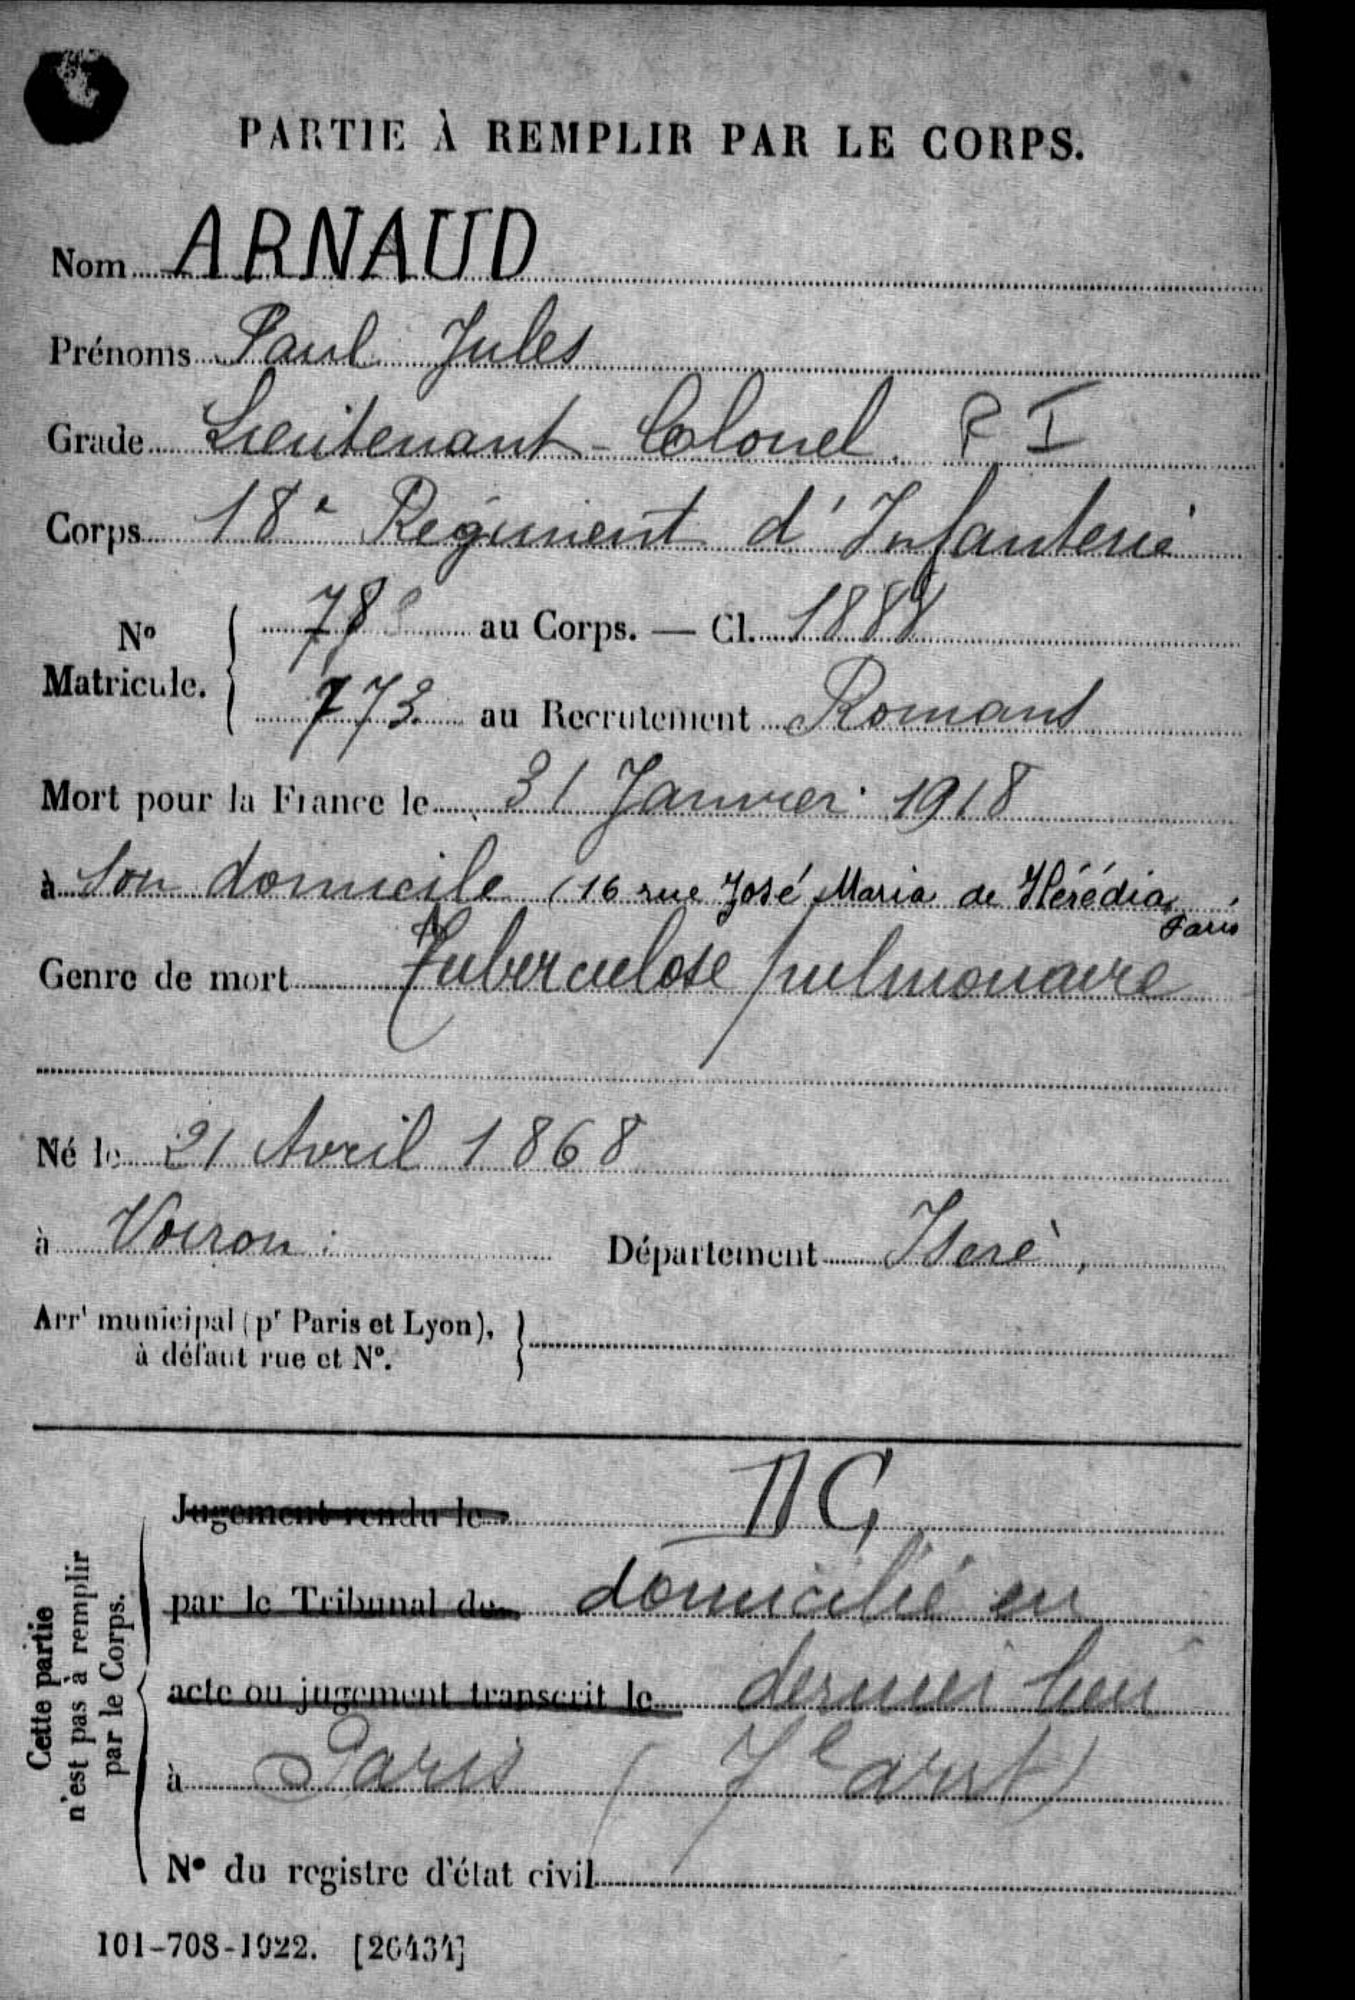 PARTIE À REMPLIR PAR LE CORPS.
Nom ARNAUD
Prénoms Paul Jules
Grade Lieutenant-Colonel. P I
Corps 18e Régiment d'Infanterie
No Matricule. 78 au Corps. — Cl. 1888
773 au Recrutement Romans
Mort pour la France le 31 Janvier 1918
à son domicile (16 rue José Maria de Hérédia,
Paris
Genre de mort Tuberculose pulmonaire
Né le 21 Avril 1868
à Voiron Département Isère,
Arrt municipal (pr Paris et Lyon),
à défaut rue et No.
Cette partie
n'est pas à remplir
par le Corps.
Jugement rendu le
par le Tribunal de domicilié en
acte ou jugement transcrit le dernier lieu
à Paris (7e arrt)
No du registre d'état civil
101-708-1922. [26434]